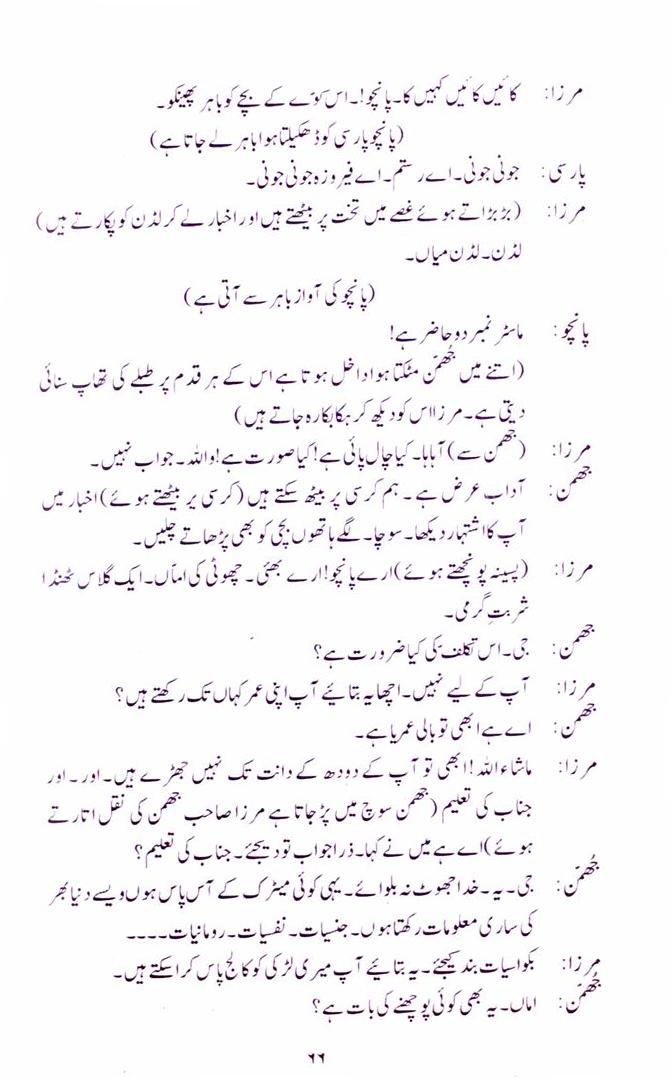 مرزا: کائیں کائیں کہیں کا۔ پانچو!۔ اس کوّے کے بچے کو باہر پھینکو۔
(پانچو پارسی کو ڈھکیلتا ہوا باہر لے جاتا ہے)
پارسی: جونی جونی۔ اے رستم۔ اے فیروزہ جونی جونی۔
مرزا: (بڑبڑاتے ہوئے غصے میں تخت پر بیٹھتے ہیں اور اخبار لے کر لڈن کو پکارتے ہیں)
لڈن۔ لڈن میاں۔
(پانچو کی آواز باہر سے آتی ہے)
پانچو: ماسٹر نمبر دو حاضر ہے!
(اتنے میں جُھمّن مٹکتا ہوا داخل ہوتا ہے اس کے ہر قدم پر طبلے کی تھاپ سنائی
دیتی ہے۔ مرزا اس کو دیکھ کر ہکا بکا رہ جاتے ہیں)
مرزا: (جھمن سے) آہاہا۔ کیا چال پائی ہے! کیا صورت ہے! واللہ۔ جواب نہیں۔
جھمن: آداب عرض ہے۔ ہم کرسی پر بیٹھ سکتے ہیں (کرسی پر بیٹھتے ہوئے) اخبار میں
آپ کا اشتہار دیکھا۔ سوچا۔ لگے ہاتھوں بچی کو بھی پڑھاتے چلیں۔
مرزا: (پسینہ پونچھتے ہوئے) ارے پانچو! ارے بھئی۔ چھوٹی کی امّاں۔ ایک گلاس ٹھنڈا
شربتِ گرمی۔
جھمن: جی۔ اس تکلف کی کیا ضرورت ہے؟
مرزا: آپ کے لیے نہیں۔ اچھا یہ بتائیے آپ اپنی عمر کہاں تک رکھتے ہیں؟
جھمن: اے ہے ابھی تو بالی عمریا ہے۔
مرزا: ماشاء اللہ! ابھی تو آپ کے دودھ کے دانت تک نہیں جھڑے ہیں۔ اور۔ اور
جناب کی تعلیم (جھمن سوچ میں پڑ جاتا ہے مرزا صاحب جھمن کی نقل اتارتے
ہوئے) اے ہے میں نے کہا۔ ذرا جواب تو دیجئے۔ جناب کی تعلیم؟
جُھمّن: جی۔ یہ۔ خدا جھوٹ نہ بلوائے۔ یہی کوئی میٹرک کے آس پاس ہوں ویسے دنیا بھر
کی ساری معلومات رکھتا ہوں۔ جنسیات۔ نفسیات۔ رومانیات۔۔۔۔
مرزا: بکواسیات بند کیجئے۔ یہ بتائیے آپ میری لڑکی کو کالج پاس کرا سکتے ہیں۔
جُھمّن: اماں۔ یہ بھی کوئی پوچھنے کی بات ہے؟
۶۶